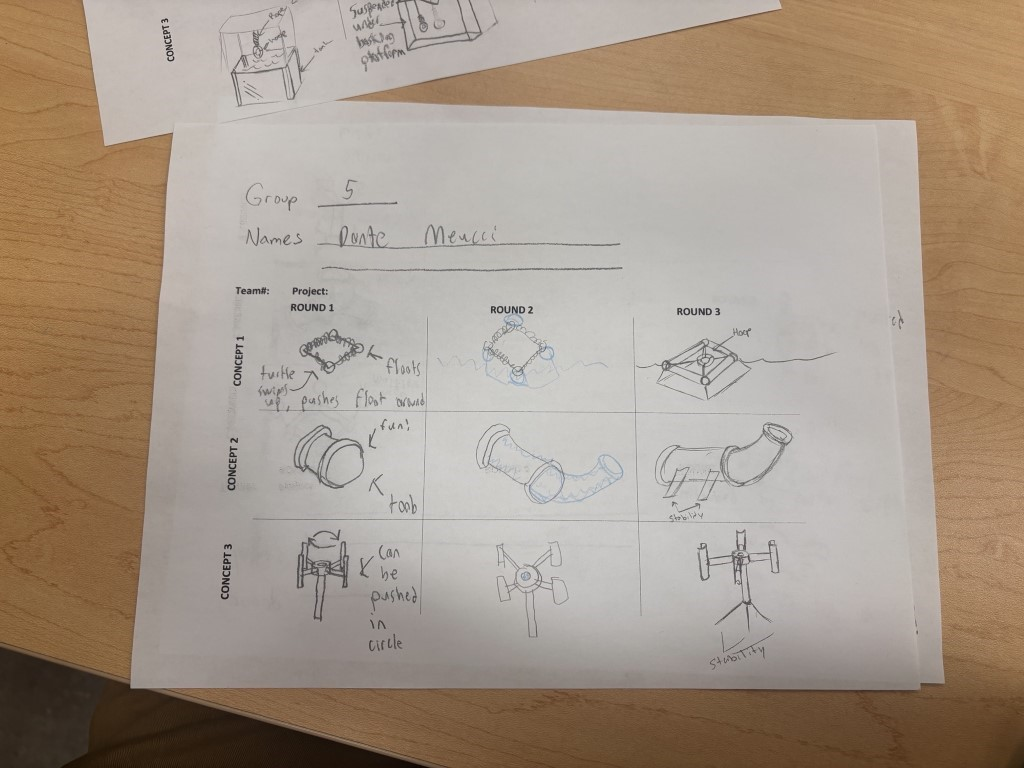 CONCEPT 3
Suspended
under
basking
platform
Group 5
Names Dante Meucci
Team#: Project:
ROUND 1
ROUND 2
ROUND 3
CONCEPT 1
turtle
swims
up, pushes float around
floats
Hoop
CONCEPT 2
fun!
toob
stability
CONCEPT 3
can
be
pushed
in
circle
stability